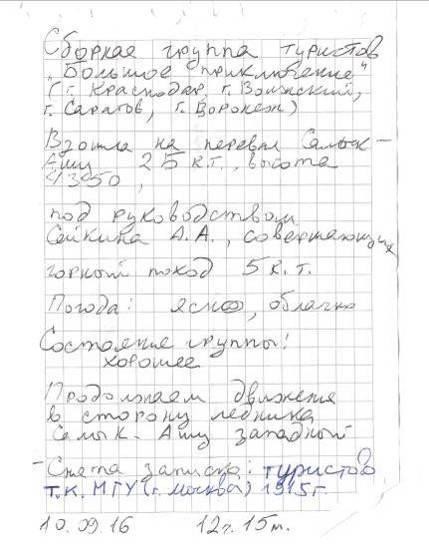 Сборная группа туристов
"Большое приключение"
(г. Краснодар, г. Волжский,
г. Саратов, г. Воронеж)
Взошла на перевал Салык-
Ашу 2Б к.т., высота
4350,
под руководством
Сейкина А.А., совершающих
горный поход 5 к.т.
Погода: ясно, облачно
Состояние группы:
хорошее
Продолжаем движение
в сторону ледника
Салык-Ашу западный
- Снята записка: туристов
т.к. МГУ (г. Москва) 1915 г.
10.09.16 12ч. 15м.